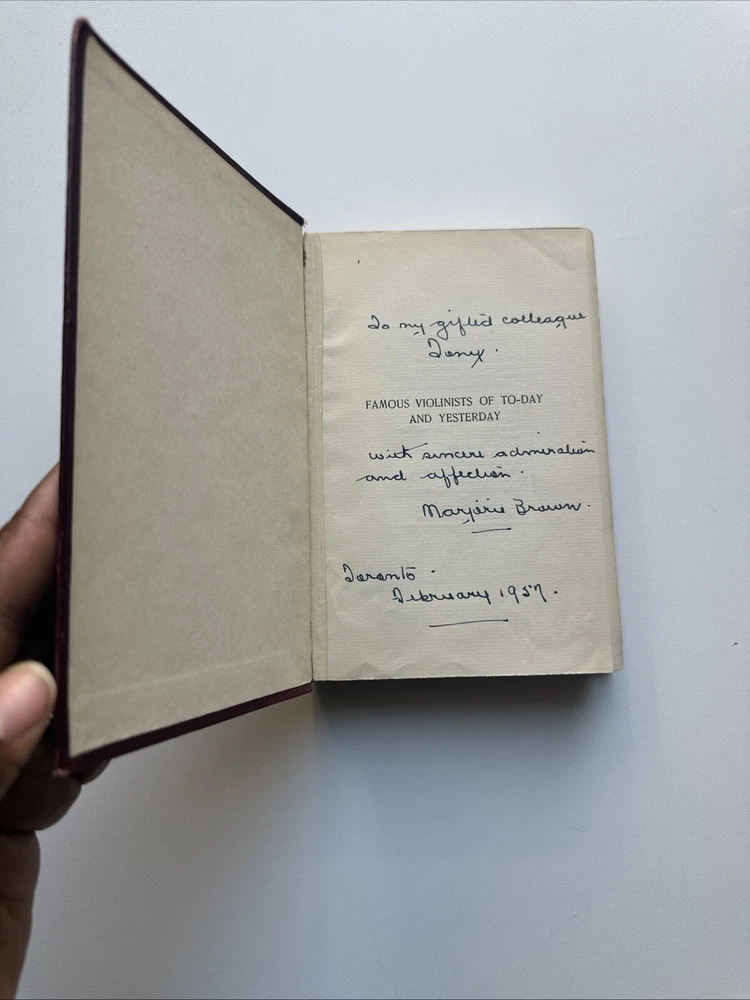 To my gifted colleague
Tony.
FAMOUS VIOLINISTS OF TO-DAY
AND YESTERDAY
with sincere admiration
and affection.
Marjorie Brown.
Toronto.
February 1957.